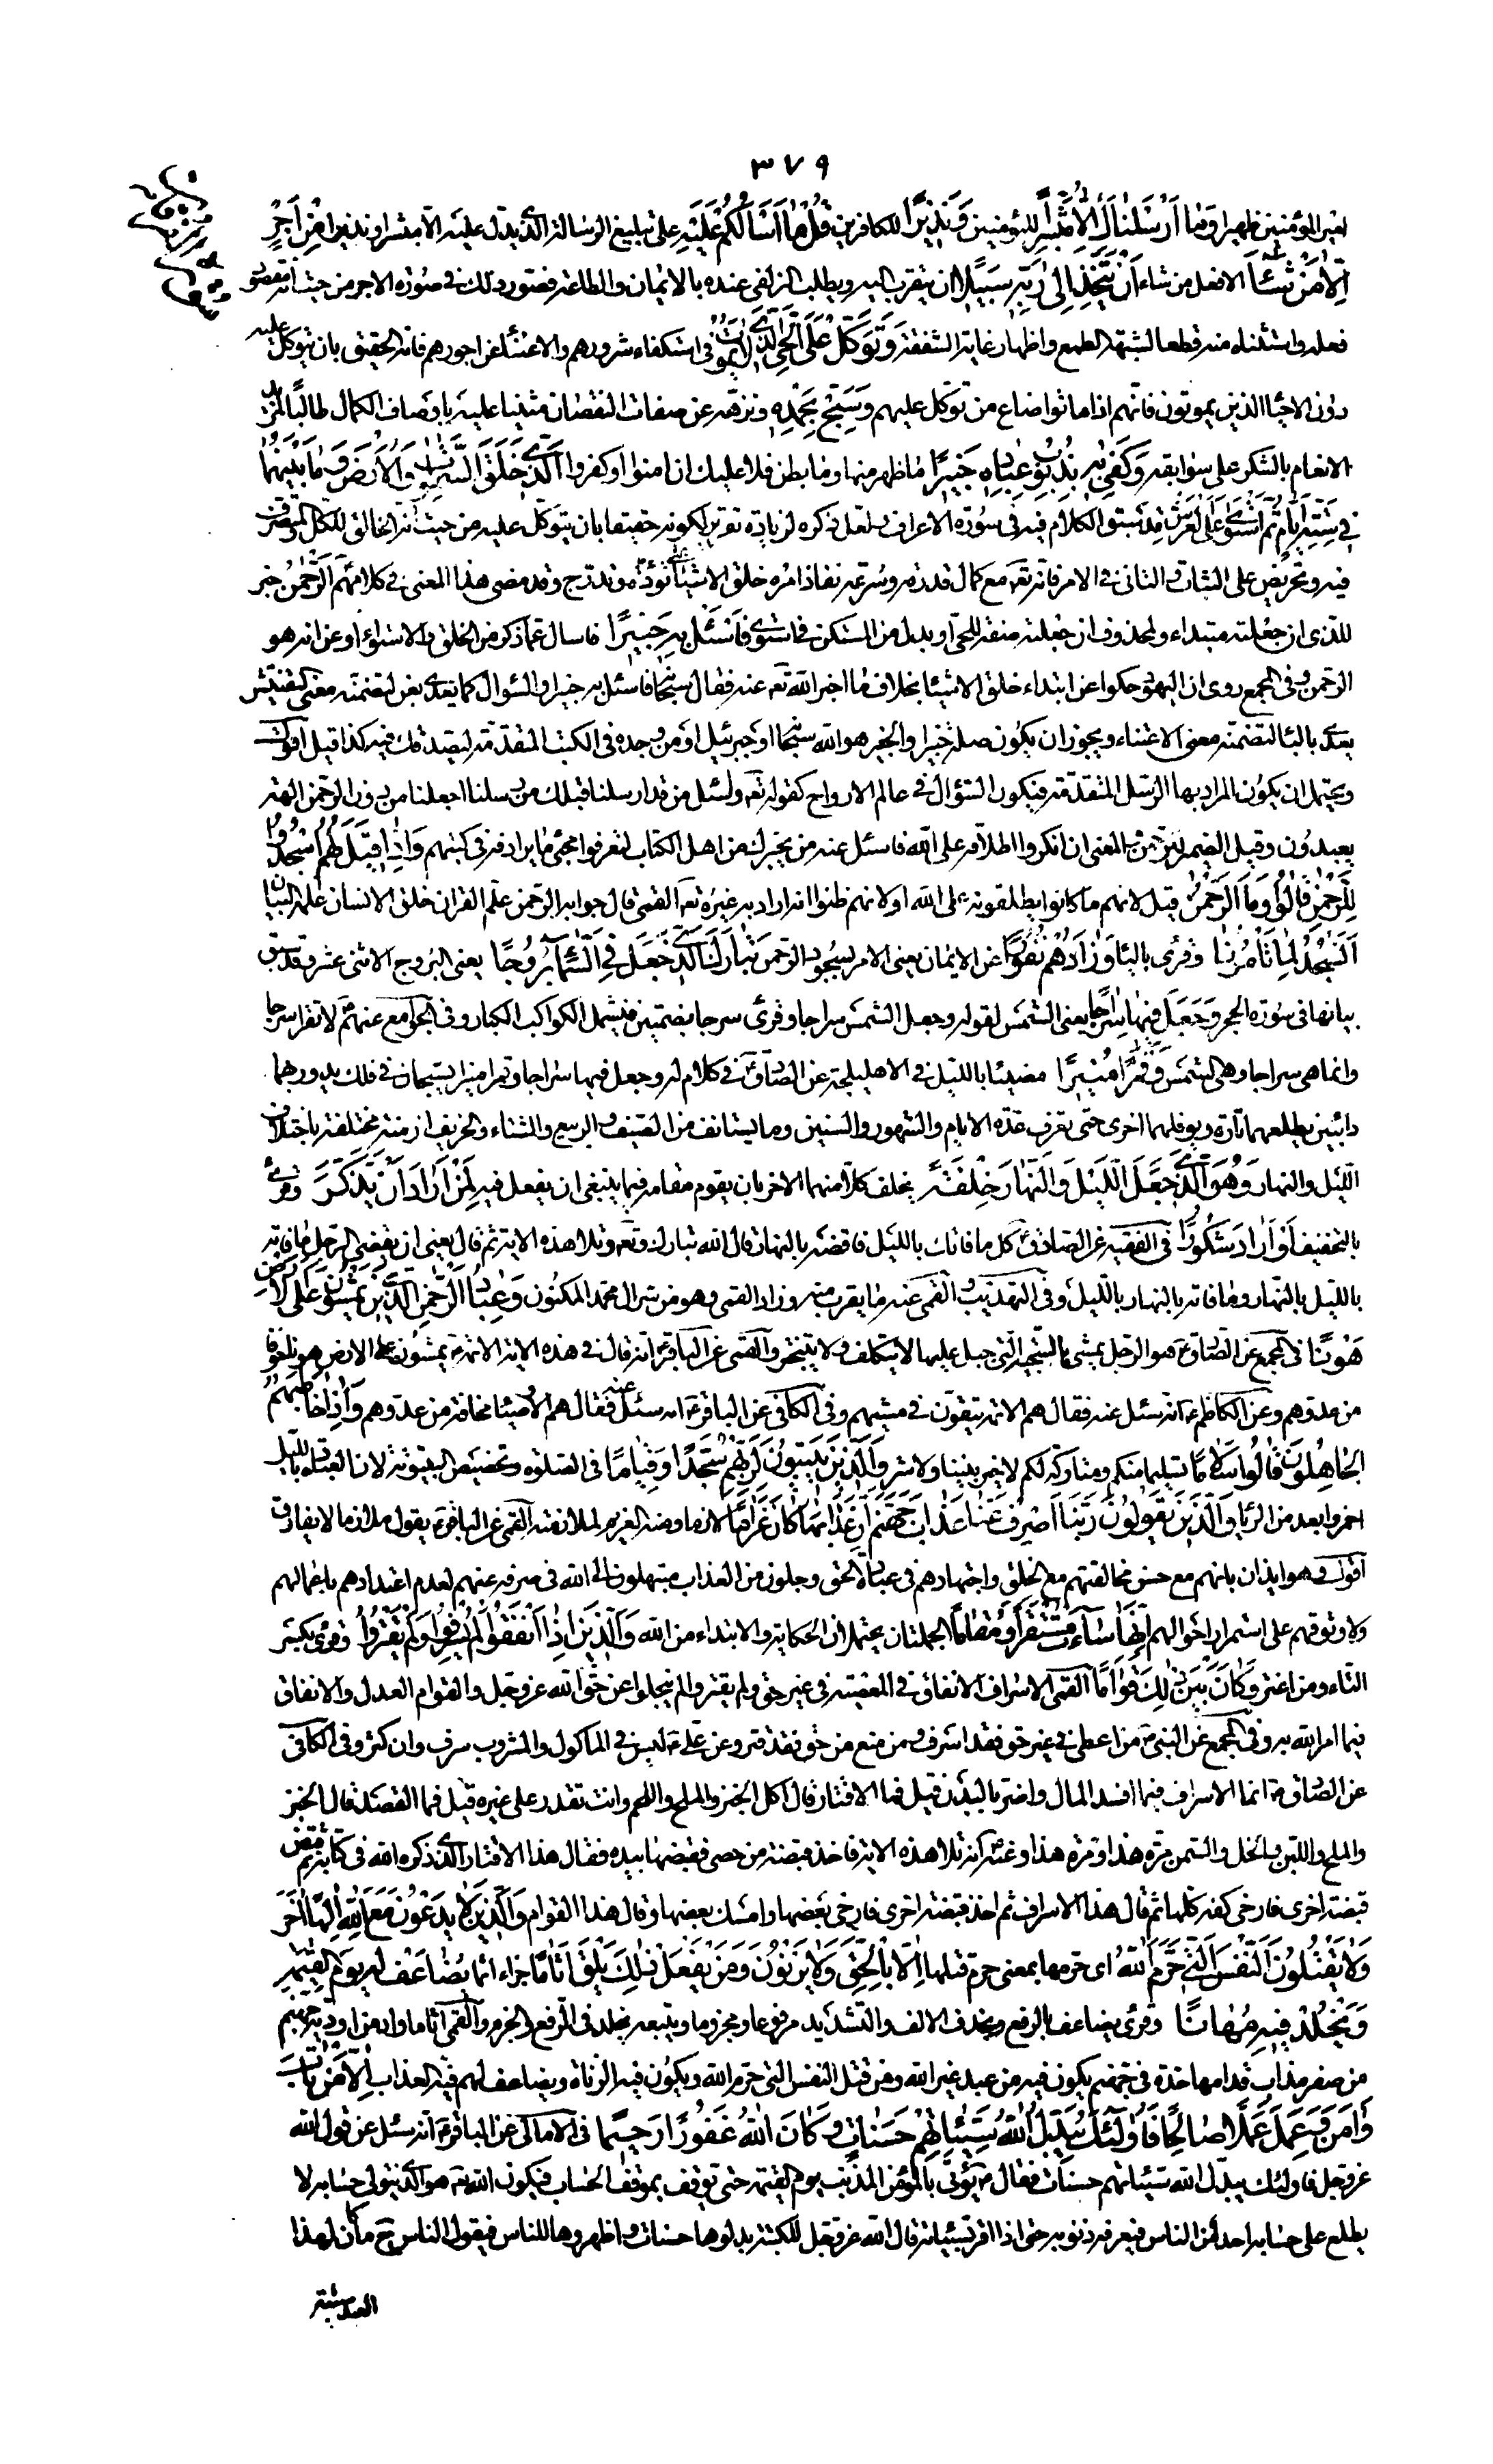 ٣٧٩
امير المؤمنين ظهيرا وَمٰا اَرْسَلْنٰاكَ اِلّٰا مُبَشِّراً للمؤمنين وَنَذيراً للكافرين قُلْ مٰا اَسْئَلُكُمْ عَلَيْهِ على تبليغ الرسالة الذى يدل عليه الا مبشرا ونذيرا مِنْ اَجْرٍ
اِلّٰا مَنْ شٰٓاءَ الا فعل من شاء اَنْ يَتَّخِذَ اِلىٰ رَبِّهِ سَبيلاً ان يتقرب اليه ويطلب الزلفى عنده بالايمان والطاعة فصوّر ذلك فى صورة الاجر من حيث انه مقصود
فعله واستثناه منه قطعا لشبهة الطمع واظهارا لغاية الشفقة وَتَوَكَّلْ عَلَى الْحَىِّ الَّذى لاٰ يَمُوتُ فى استكفاء شرورهم والاغناء عن اجورهم فانه الحقيق بان يتوكل عليه
دون الاحياء الذين يموتون فانهم اذا ماتوا ضاع من توكل عليهم وَسَبِّحْ بِحَمْدِهِ ونزهه عن صفات النقصان مثنيا عليه باوصاف الكمال طالبا لمزيد
الانعام بالشكر على سوابقه وَكَفىٰ بِهِ بِذُنُوبِ عِبٰادِهِ خَبيراً ما ظهر منها وما بطن فلا عليك ان امنوا او كفروا اَلَّذى خَلَقَ السَّمٰوٰاتِ وَالْاَرْضَ وَمٰا بَيْنَهُمٰا
فى سِتَّةِ اَيّٰامٍ ثُمَّ اسْتَوىٰ عَلَى الْعَرْشِ قد سبق الكلام فيه فى سورة الاعراف ولعل ذكره لزيادة تقرير لكونه حقيقا بان يتوكل عليه من حيث انه الخالق للكل والمتصرف
فيه وتحريض على الثبات والتانى فى الامر فانه تعه مع كمال قدرته وسرعة نفاذ امره خلق الاشياء على تؤدة وتدرج وقد مضى هذا المعنى فى كلامهم ع اَلرَّحْمٰنُ خبر
للذى ان جعلته مبتداء ولمحذوف ان جعلته صفة للحى او بدل من المستكن فى استوى فَاسْئَلْ بِهِ خَبيراً فاسال عما ذكر من الخلق والاستواء او عن انه هو
الرحمن وفى المجمع روى ان اليهود حكوا عن ابتداء خلق الاشياء بخلاف ما اخبر الله تعه عنه فقال سبحانه فاسئل به خبيرا والسؤال كما يعدى بعن لتضمنه معنى التفتيش
يعدى بالباء لتضمنه معنى الاعتناء ويجوز ان يكون صلة خبيرا والخبير هو الله سبحانه او جبرئيل او من وجده فى الكتب المتقدمة ليصدقك فيه كذا قيل اقول
ويحتمل ان يكون المراد بها الرسل المتقدمة فيكون السؤال فى عالم الارواح كقوله تعه واسئل من قد ارسلنا قبلك من رسلنا اجعلنا من دون الرحمن الهة
يعبدون وقيل الضمير للرحمن والمعنى ان انكروا اطلاقه على الله فاسئل عنه من يخبرك من اهل الكتاب لتعرفوا مجئ ما يرادفه فى كتبهم وَاِذٰا قيلَ لَهُمُ اسْجُدُوا
لِلرَّحْمٰنِ قٰالُوا وَمَا الرَّحْمٰنُ قيل لانهم ما كانوا يطلقونه على الله او لانهم ظنوا انه اراد به غيره تعه القمى قال جوابه الرحمن علم القران خلق الانسان علمه البيان
اَنَسْجُدُ لِمٰا تَاْمُرُنٰا وقرئ بالياء وَزٰادَهُمْ نُفُوراً عن الايمان يعنى الامر بسجود الرحمن تَبٰارَكَ الَّذى جَعَلَ فِى السَّمٰٓاءِ بُرُوجاً يعنى البروج الاثنى عشر وقد سبق
بيانها فى سورة الحجر وَجَعَلَ فيهٰا سِرٰاجاً يعنى الشمس لقوله وجعل الشمس سراجا وقرئ سرجا بضمتين فيشمل الكواكب الكبار وفى الجوامع عنهم ع لا تقرا سرجا
وانما هى سراجا وهى الشمس وَقَمَراً مُنيراً مضيئا بالليل فى الاهليلجة عن الصادق ع فى كلام له وجعل فيها سراجا وقمرا منيرا يسبحان فى فلك يدور بهما
دائبين يطلعهما تارة ويوفلهما اخرى حتى تعرف عدة الايام والشهور والسنين وما يستانف من الصيف والربيع والشتاء والخريف ازمنة مختلفة باختلاف
الليل والنهار وَهُوَ الَّذى جَعَلَ اللَّيْلَ وَالنَّهٰارَ خِلْفَةً يخلف كلا منهما الاخر بان يقوم مقامه فيما ينبغى ان يفعل فيه لِمَنْ اَرٰادَ اَنْ يَذَّكَّرَ وقرئ
بالتخفيف اَوْ اَرٰادَ شُكُوراً فى الفقيه عن الصادق ع كل ما فاتك بالليل فاقضه بالنهار قال الله تبارك وتعه وتلا هذه الاية ثم قال يعنى ان يقضى الرجل ما فاته
بالليل بالنهار وما فاته بالنهار بالليل وفى التهذيب والقمى عنه ما يقرب منه وزاد القمى وهو من سر ال محمد المكنون وَعِبٰادُ الرَّحْمٰنِ الَّذينَ يَمْشُونَ عَلَى الْاَرْضِ
هَوْناً فى المجمع عن الصادق ع هو الرجل يمشى بالسجية التى جبل عليها لا يتكلف ولا يتبختر والقمى عن الباقر ع انه قال فى هذه الاية الائمة ع يمشون على الارض هونا خوفا
من عدوهم وعن الكاظم ع انه سئل عنه فقال هم الائمة يتقون فى مشيهم وفى الكافى عن الباقر ع انه سئل عنه فقال هم الاوصياء مخافة من عدوهم وَاِذٰا خٰاطَبَهُمُ
الْجٰاهِلُونَ قٰالُوا سَلاٰماً تسليما منكم ومتاركة لكم لا خير بيننا ولا شر وَالَّذينَ يَبيتُونَ لِرَبِّهِمْ سُجَّداً وَقِيٰاماً فى الصلوة وتخصيص البيتوتة لان العبادة بالليل
احمز وابعد من الريا وَالَّذينَ يَقُولُونَ رَبَّنَا اصْرِفْ عَنّٰا عَذٰابَ جَهَنَّمَ اِنَّ عَذٰابَهٰا كٰانَ غَرٰاماً لازما ومنه الغريم لملازمته القمى عن الباقر ع يقول ملازما لا يفارق
اقول وهو ايذان بانهم مع حسن مخالقتهم مع الخلق واجتهادهم فى عبادة الحق وجلون من العذاب مبتهلون الى الله فى صرفه عنهم لعدم اعتدادهم باعمالهم
ولا وثوقهم على استمرار احوالهم اِنَّهٰا سٰٓاءَتْ مُسْتَقَرًّا وَمُقٰاماً الجملتان يحتملان الحكاية والابتداء من الله وَالَّذينَ اِذٰا اَنْفَقُوا لَمْ يُسْرِفُوا وَلَمْ يَقْتُرُوا وقرئ بكسر
التاء ومن اقتر وَكٰانَ بَيْنَ ذٰلِكَ قَوٰاماً القمى الاسراف الانفاق فى المعصية فى غير حق ولم يقتروا لم يبخلوا عن حق الله عز وجل والقوام العدل والانفاق
فيما امر الله به وفى المجمع عن النبى ص من اعطى فى غير حق فقد اسرف ومن منع من حق فقد قتر وعن على ع ليس فى الماكول والمشروب سرف وان كثر وفى الكافى
عن الصادق ع انما الاسراف فيما افسد المال واضر بالبدن قيل فما الاقتار قال اكل الخبز والملح وانت تقدر على غيره قيل فما القصد قال الخبز
والملح واللبن والخل والسمن مرة هذا ومرة هذا وعنه ع انه تلا هذه الاية فاخذ قبضة من حصى فقبضها بيده فقال هذا الاقتار الذى ذكره الله فى كتابه ثم قبض
قبضة اخرى فارخى كفه كلها ثم قال هذا الاسراف ثم اخذ قبضة اخرى فارخى بعضها وامسك بعضها وقال هذا القوام وَالَّذينَ لاٰ يَدْعُونَ مَعَ اللّٰهِ اِلٰهاً اٰخَرَ
وَلاٰ يَقْتُلُونَ النَّفْسَ الَّتى حَرَّمَ اللّٰهُ اى حرمها بمعنى حرم قتلها اِلّٰا بِالْحَقِّ وَلاٰ يَزْنُونَ وَمَنْ يَفْعَلْ ذٰلِكَ يَلْقَ اَثٰاماً جزاء اثم يُضٰاعَفْ لَهُ يَوْمَ الْقِيٰمَةِ
وَيَخْلُدْ فيهِ مُهٰاناً وقرئ يضاعف بالرفع وبحذف الالف والتشديد مرفوعا ومجزوما ويتبعه يخلد فى الرفع والجزم والقمى اثاما واد من اودية جهنم
من صفر مذاب قدامها خدة فى جهنم يكون فيه من عبد غير الله ومن قتل النفس التى حرم الله ويكون فيه الزناة ويضاعف لهم فيه العذاب اِلّٰا مَنْ تٰابَ
وَاٰمَنَ وَعَمِلَ عَمَلاً صٰالِحاً فَاُولٰٓئِكَ يُبَدِّلُ اللّٰهُ سَيِّئٰاتِهِمْ حَسَنٰاتٍ وَكٰانَ اللّٰهُ غَفُوراً رَحيماً فى الامالى عن الباقر ع انه سئل عن قول الله
عز وجل فاولئك يبدل الله سيئاتهم حسنات فقال ع يؤتى بالمؤمن المذنب يوم القيمة حتى يوقف بموقف الحساب فيكون الله تعه هو الذى يتولى حسابه لا
يطلع على حسابه احدا من الناس فيعرفه ذنوبه حتى اذا اقر بسيئاته قال الله عز وجل للكتبة بدلوها حسنات واظهروها للناس فيقول الناس ح ما كان لهذا
العبد سيئة